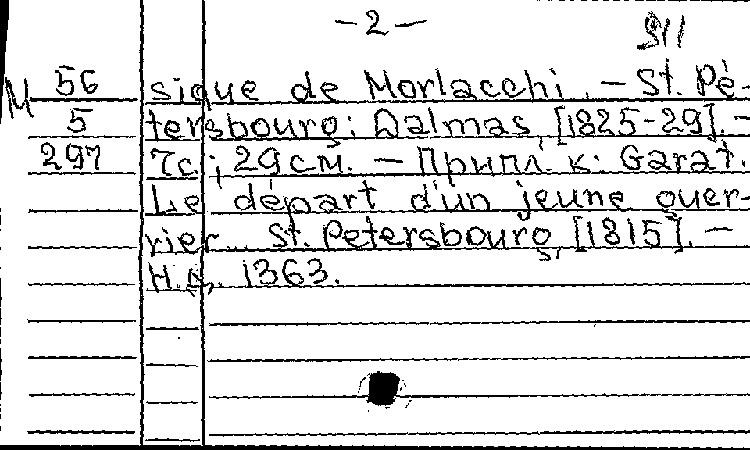 -2-
М 56
5
297
sique de Morlacchi. - St. Pé-
tersbourg: Dalmas, [1825-29]. -
7с.; 29см. - Припл. к: Garat.
Le départ d'un jeune guer-
rier... St. Petersbourg, [1815]. -
Н.д. 1363.